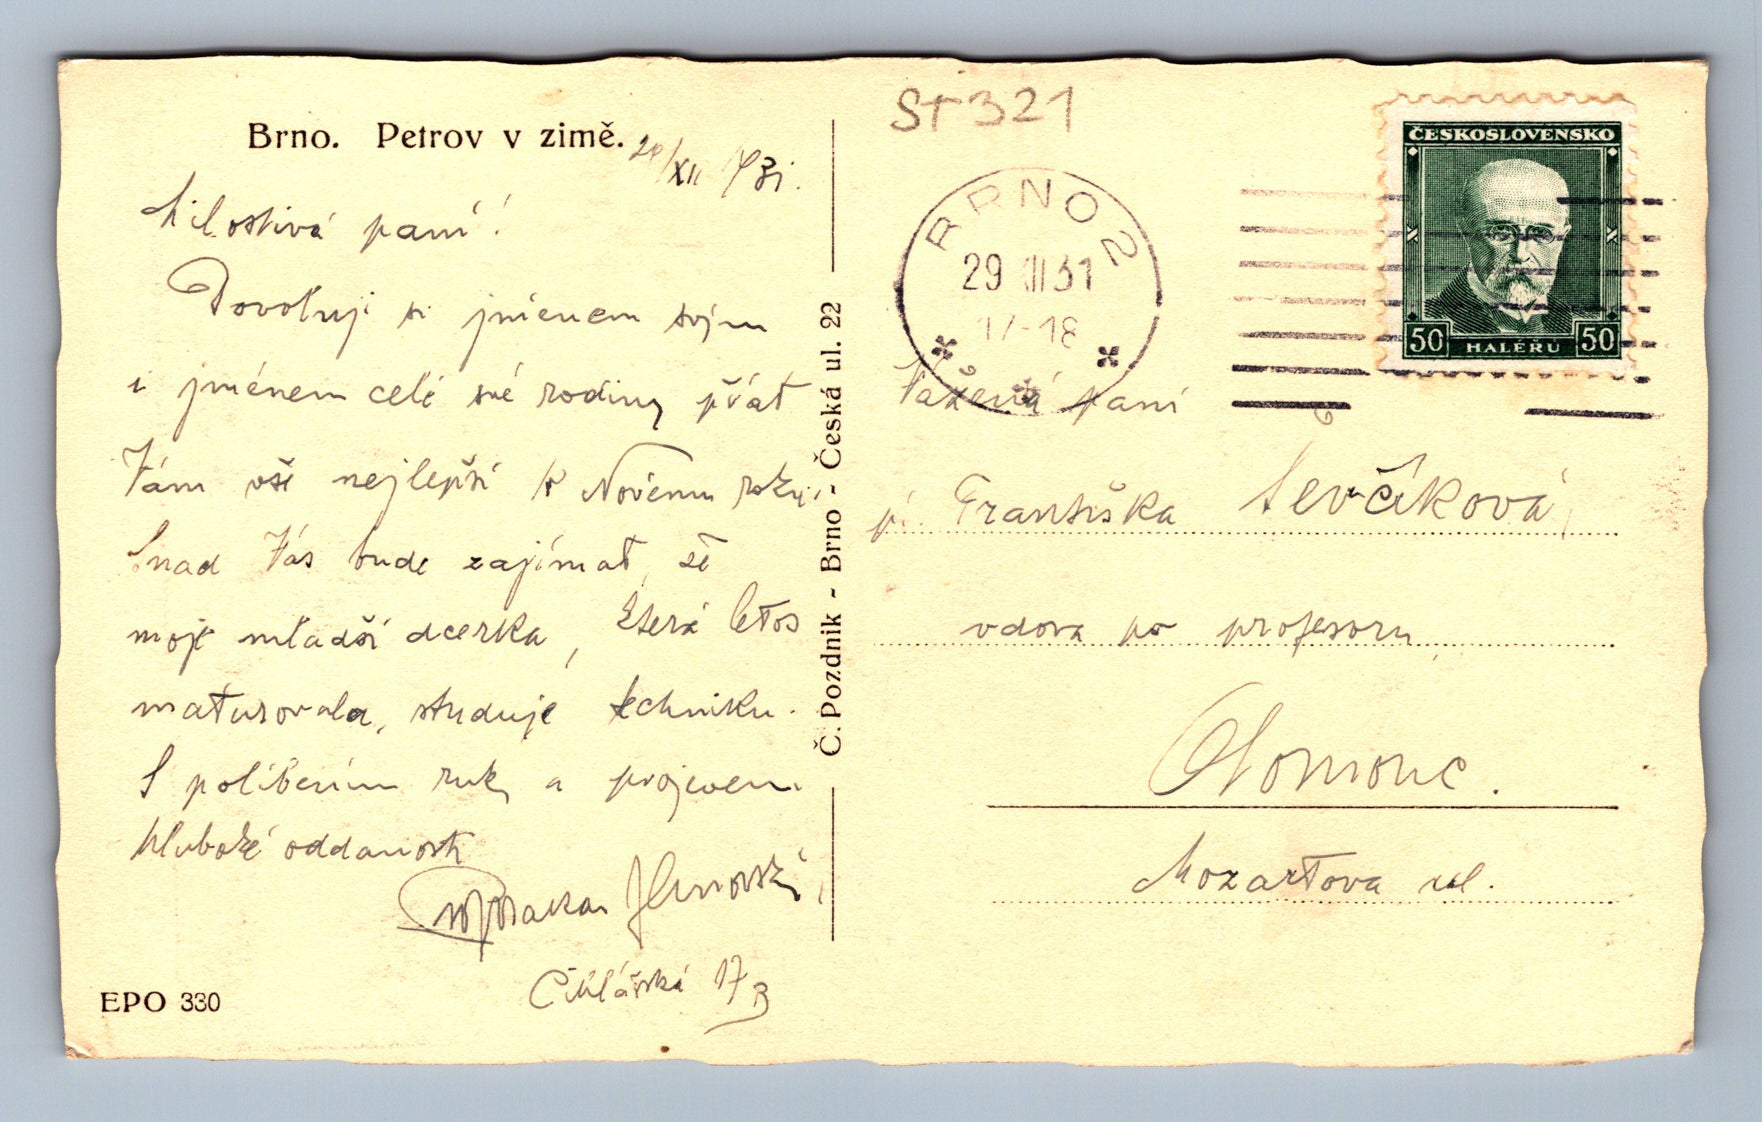 Brno. Petrov v zimě.
/XII 931.
Milostivá paní!
Dovoluji si jménem svým
i jménem celé své rodiny přát
Vám vše nejlepší k Novému roku.
Snad Vás bude zajímat, že
moje mladší dcerka, která letos
maturovala, studuje techniku.
S políbením ruk a projevem
hluboké oddanosti
Cihlářská 17
EPO 330
Č. Pozdnik - Brno - Česká ul. 22
ST 321
BRNO 2
29 XII 31
17-18
ČESKOSLOVENSKO
50 HALÉŘŮ 50
Vážená paní
pí. Františka Ševčíková,
vdova po profesoru,
Olomouc.
Mozartova ul.